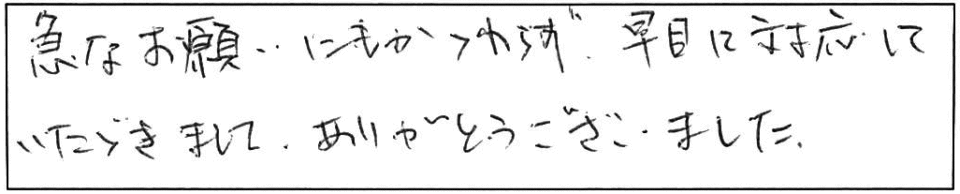 急なお願いにもかかわらず、早目に対応して
いただきまして、ありがとうございました。